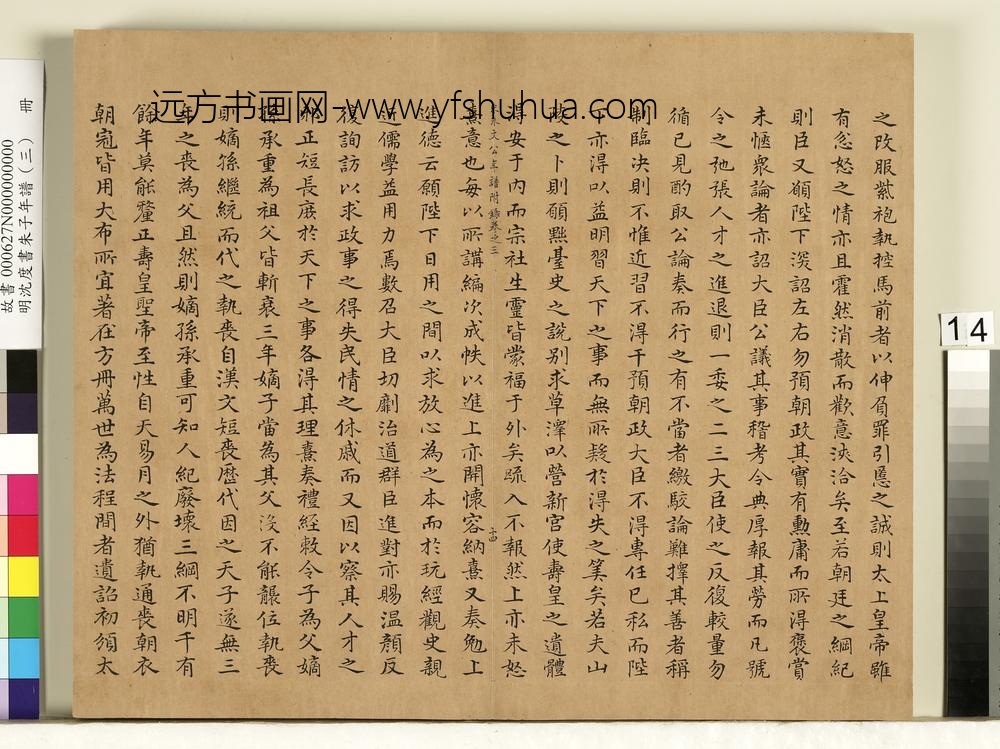 之改服紫袍執控馬前者以伸負罪引慝之誠則太上皇帝雖
有忿怒之情亦且霍然消散而歡意浹洽矣至若朝廷之綱紀
則臣又願陛下深詔左右勿預朝政其實有勳庸而所得褒賞
未愜衆論者亦詔大臣公議其事稽考令典厚報其勞而凡號
令之弛張人才之進退則一委之二三大臣使之反復較量勿
循已見酌取公論奏而行之有不當者繳駮論難擇其善者稱
制臨决則不惟近習不得干預朝政大臣不得專任已私而陛
下亦得以益明習天下之事而無所疑於得失之筭矣若夫山
陵之卜則願黜臺史之説别求草澤以營新宫使壽皇之遺體
得安于内而宗社生靈皆蒙福于外矣疏入不報然上亦未怒
朱文公年譜附錄卷之三 十四
熹意也每以所講編次成帙以進上亦開懷容納熹又奏勉上
進德云願陛下日用之間以求放心為之本而於玩經觀史親
近儒學益用力焉數召大臣切劘治道群臣進對亦賜温顔反
復詢訪以求政事之得失民情之休戚而又因以察其人才之
邪正短長庶於天下之事各得其理熹奏禮經敕令子為父嫡
孫承重為祖父皆斬衰三年嫡子當為其父没不能襲位執喪
則嫡孫繼統而代之執喪自漢文短喪歷代因之天子遂無三
年之喪為父且然則嫡孫承重可知人紀廢壞三綱不明千有
餘年莫能釐正壽皇聖帝至性自天易月之外猶執通喪朝衣
朝冠皆用大布所宜著在方冊萬世為法程間者遺詔初頒太
远方书画网-www.yfshuhua.com
14
冊
故書000627N000000000
明沈度書朱子年譜(三)